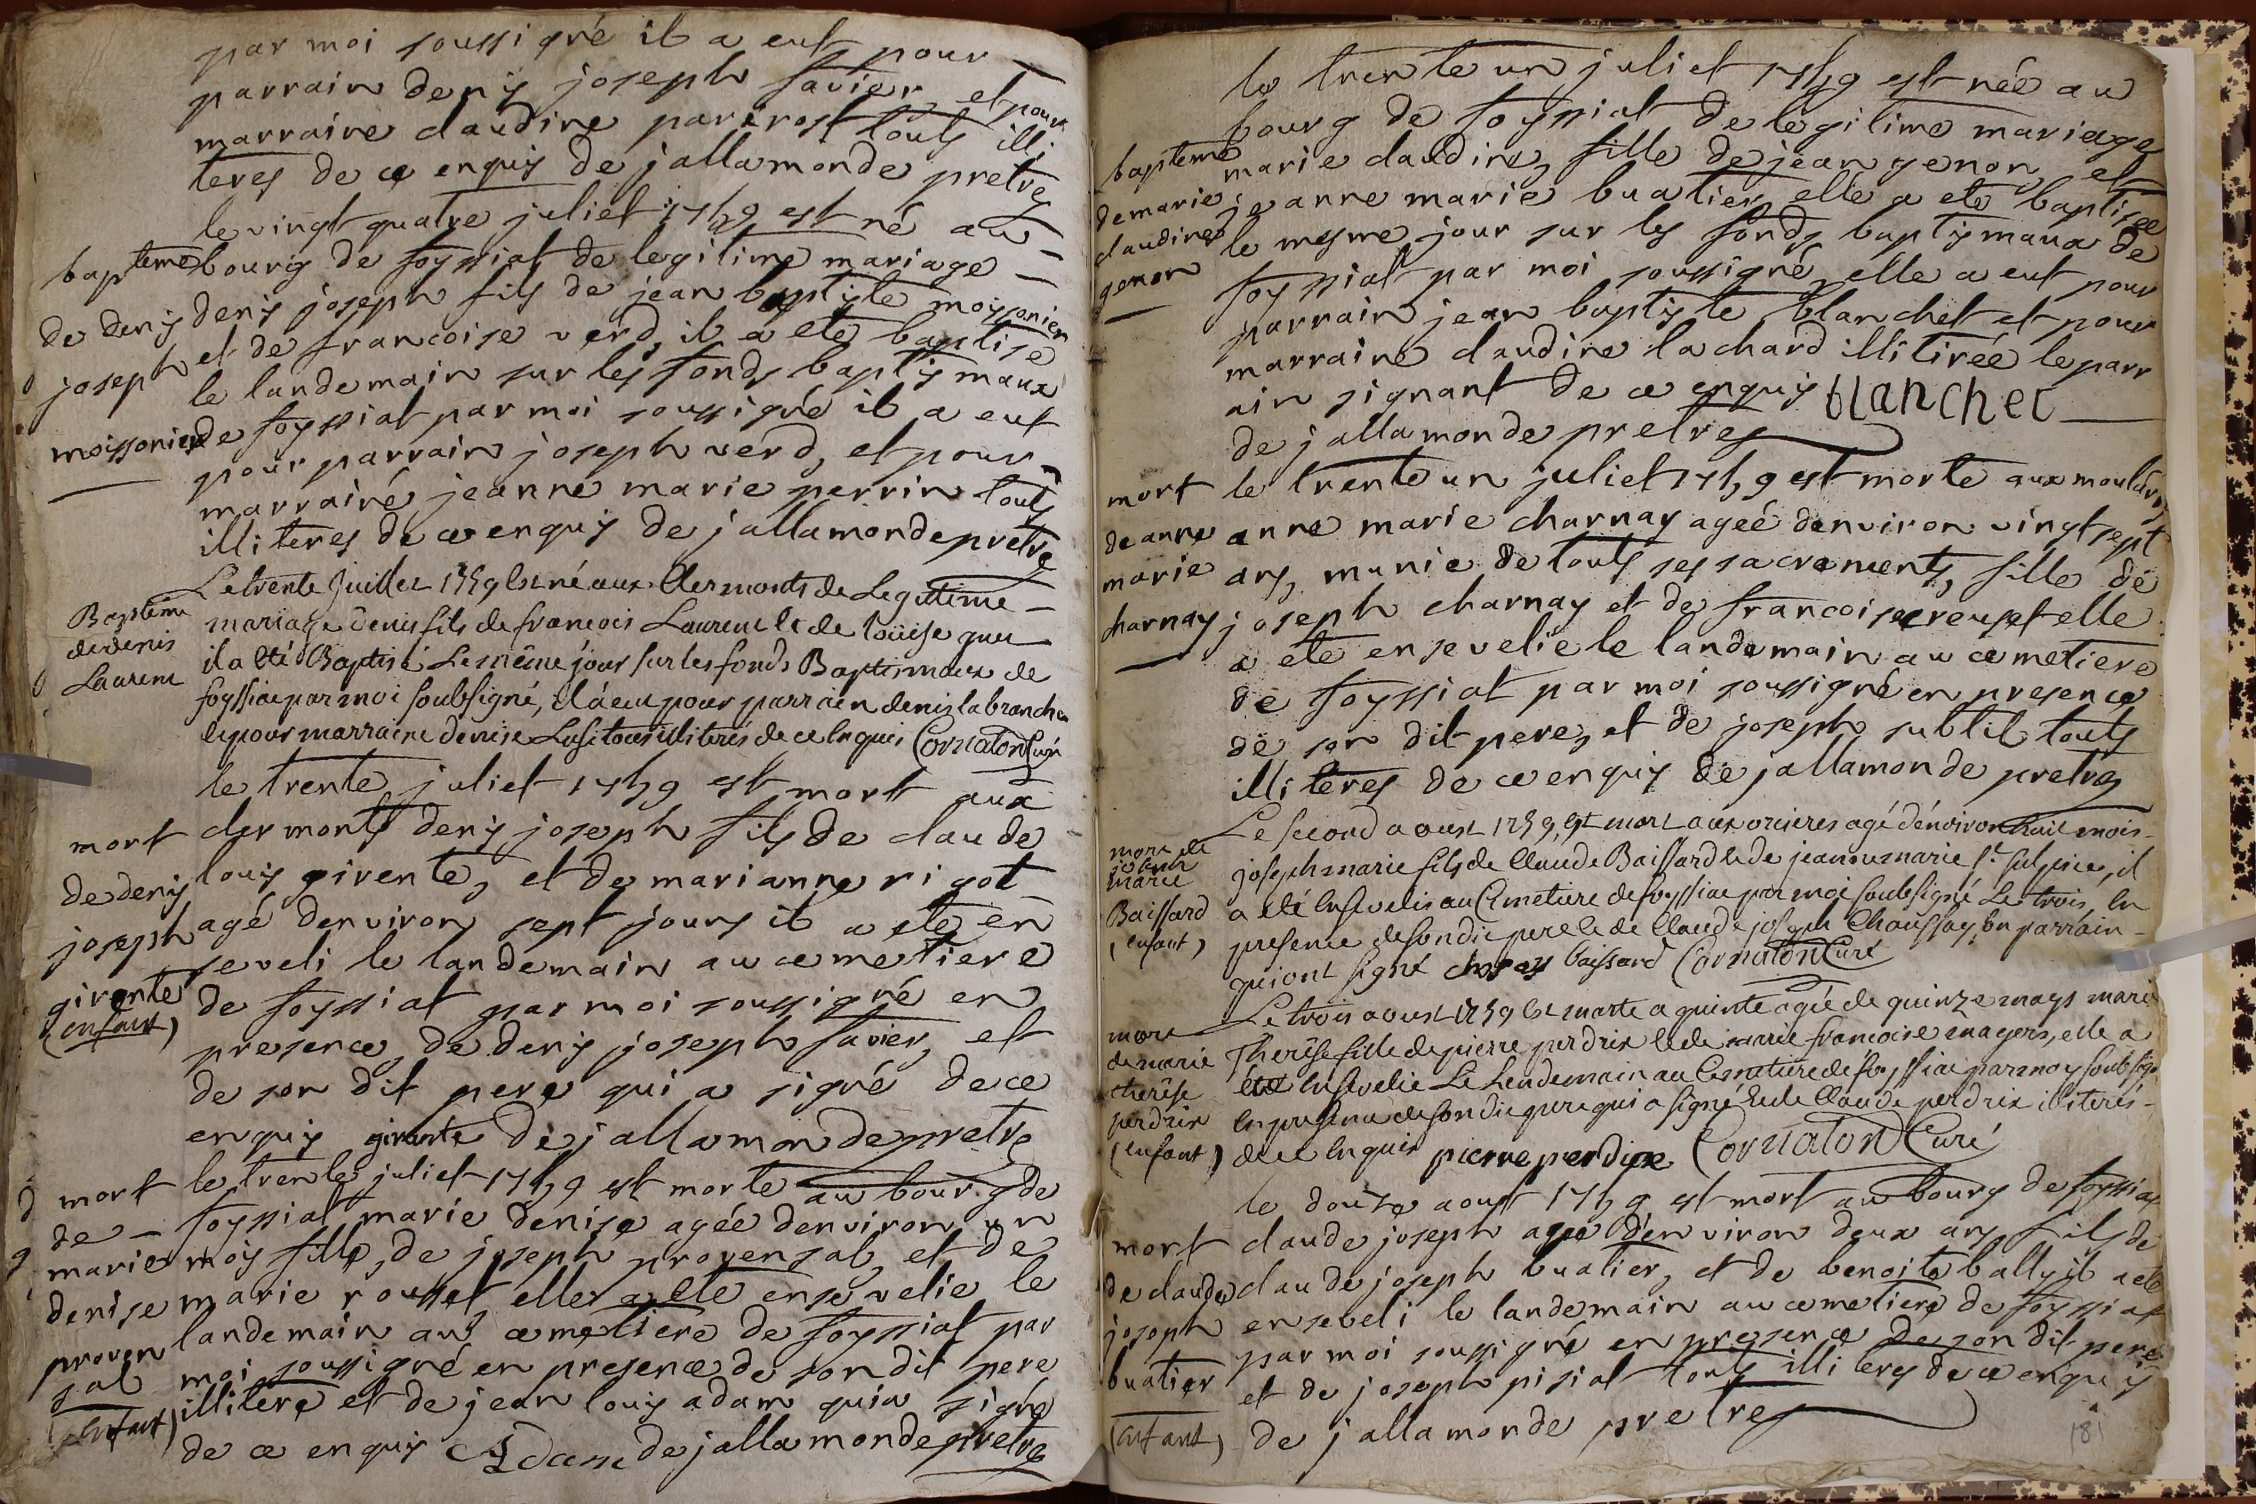 par moi soussigné il a eut pour
parrain denis joseph favier et pour
marraine claudine touts illi
teres de ce enquis de jallamonde pretre
le vingt quatre juliet 1759 est né au
bapteme bourg de foyssiat de legitime mariage
de denis denis joseph fils de jean baptiste moissonier
joseph et de francoise verd, il a eté baptisé
le landemain sur les fonds baptismaux
moissonier de foyssiat par moi soussigné il a eut
pour parrain joseph verd, et pour
marraine jeanne marie perrin touts
illiteres de ce enquis de jallamonde pretre
Le trente Juillet 1759 Est né aux Clermonts de Legitime
Bapteme mariage denis fils de francois Laurent Et de loüise
de denis il a Eté Baptisé Le même jour sur les fonds Baptismaux de
Laurent foyssiat par moi soubsigné, il a eu pour parrain denis labranche
Et pour marraine denise tous illiterés de ce Enquis Cornaton Curé
le trente juliet 1759 est mort aux
mort clermonts denis joseph fils de claude
de denis louis girente, et de marianne rigot
joseph agé denviron sept jours il a eté en
seveli le landemain au cemetiere
girente de foyssiat par moi soussigné en
(enfant) presence de denis joseph favier, et
de son dit pere qui a signé de ce
enquis girente de jallamonde pretre
mort le trente juliet 1759 est morte au bourg de
de foyssiat marie denise agée denviron un
marie mois fille de joseph provensal, et de
denise marie rousset elle a eté ensevelie le
proven landemain au cemetiere de foyssiat par
sal moi soussigné en presence de son dit pere
(enfant) illitere et de jean louis adam qui a signé
de ce enquis Adam de jallamonde pretre
le trente un juliet 1759 est née au
bourg de foyssiat de legitime mariage
bapteme marie claudine, fille de jean genon, et
de marie jeanne marie buatier, elle a eté baptisée
claudine le mesme jour sur les fonds baptismaux de
genon foyssiat par moi soussigné, elle a eut pour
parrain jean baptiste blanchet et pour
marraine claudine lachard illitirée le parr
ain signant de ce enquis blanchet
de jallamonde pretre
mort le trente un juliet 1759 est morte aux
de anne anne marie charnay ageé denviron vingt sept
marie ans, munie de touts ses sacrements, fille de
charnay joseph charnay et de francoise elle
a eté ensevelie le landemain au cemetiere
de foyssiat par moi soussigné en presence
de son dit pere, et de joseph subtil touts
illiteres de ce enquis de jallamonde pretre
Le second aoust 1759, Est mort aux orcieres agé dénviron huit mois
mort de joseph marie joseph marie fils de Claude Baissard Et de jeanne marie St. sulpice, il
Baissard a eté Ensevelis au Cimetiere de foyssiat par moi soubsigné Le trois, En
(enfant) presence de son dit pere Et de Claude joseph Chaussay son parrain
qui ont signé baissard Cornaton Curé
Le trois aoust 1759 Est morte a quinte agée de quinze moys marie
mort de marie Therêse fille de pierre perdrix Et de marie francoise magers, elle a
therêse été Ensevelie Le Lendemain au Cimetiere de foyssiat par moy soubsigné
perdrix En presence de son dit pere qui a signé Et de Claude perdrix illiterés
(enfant) de ce Enquis pierre perdrix Cornaton Curé
le douze aoust 1759 est mort au bourg de foyssiat
mort claude joseph agée d'environ deux ans fils de
de claude claude joseph buatier, et de benoite bally il a eté
joseph enseveli le landemain au cemetiere de foyssiat
buatier par moi soussigné en presence de son dit pere
et de joseph pisiat touts illiteres de ce enquis
(enfant) de jallamonde pretre
181